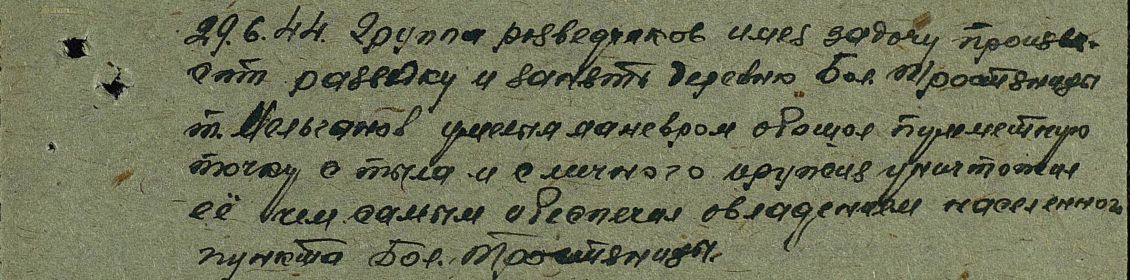 29.6.44. Группа разведчиков имея задачу произве-
сти разведку и занять деревню Бол. Тростяницы
т. Мельганов умелым маневром обошол пулеметную
точку с тыла и с личного оружия уничтожил
её чем самым обеспечил овладением населенного
пункта Бол. Тростяницы.